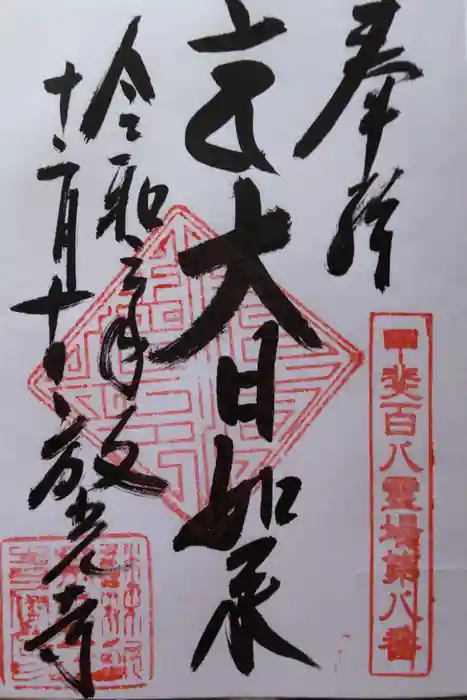 奉拝
甲斐百八霊場第八番
大日如来
令和三年
十二月十一日
放光寺